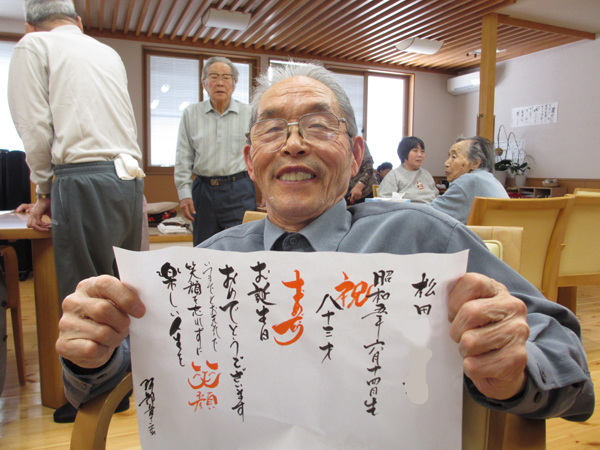 松田
昭和五年六月十四日生
祝
八十三才
寿
お誕生日
おめでとうございます
いつまでもお元気で
笑顔を忘れずに
笑顔
楽しい人生を